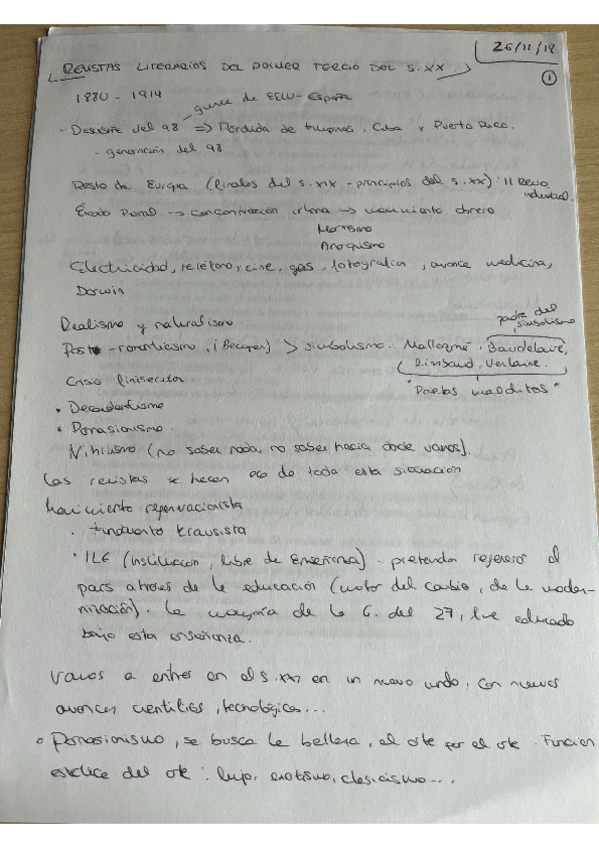 26/11/18
1
REVISTAS LITERARIAS DEL PRIMER TERCIO DEL S. XX
1880 - 1914
guerra de EEUU - España
- Desastre del 98 => Pérdida de Filipinas, Cuba y Puerto Rico.
- generación del 98
Resto de Europa (finales del s. XIX - principios del s. XX): II Revo. industrial.
Éxodo Rural -> concentración urbana -> movimiento obrero
Marxismo
Anarquismo
Electricidad, teléfono, cine, gas, fotografía, avance medicina,
Darwin
Realismo y naturalismo
padre del simbolismo
Post-romanticismo, (Becquer) > simbolismo. Mallarmé, Baudelaire,
(Rimbaud, Verlaine.
Crisis finisecular
"Poetas malditos"
• Decadentismo
• Parnasianismo.
Nihilismo (no saber nada, no saber hacia donde vamos).
Las revistas se hacen eco de toda esta situación
Movimiento regeneracionista
• Fundamento Krausista
• ILE (Institución, libre de Enseñanza). pretenden regenerar el
país a través de la educación (motor del cambio, de la moder-
nización). La mayoría de la G. del 27, fue educado
bajo esta enseñanza.
Vamos a entrar en el s. XX en un nuevo mundo, con nuevos
avances científicos, tecnológicos...
• Parnasianismo, se busca la belleza, el arte por el arte. Función
estética del arte: lujo, exotismo, clasicismo...